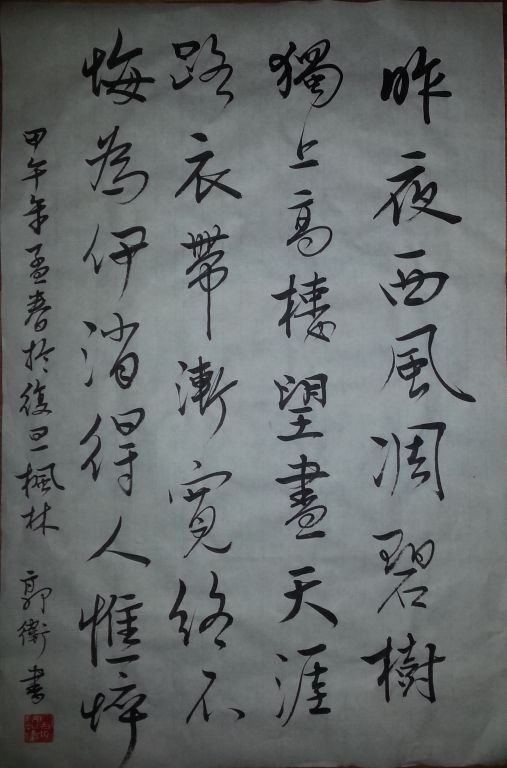 昨夜西風凋碧樹
獨上高樓望盡天涯
路衣帶漸寬終不
悔為伊消得人憔悴
甲午年孟春於復旦楓林
郭衛書